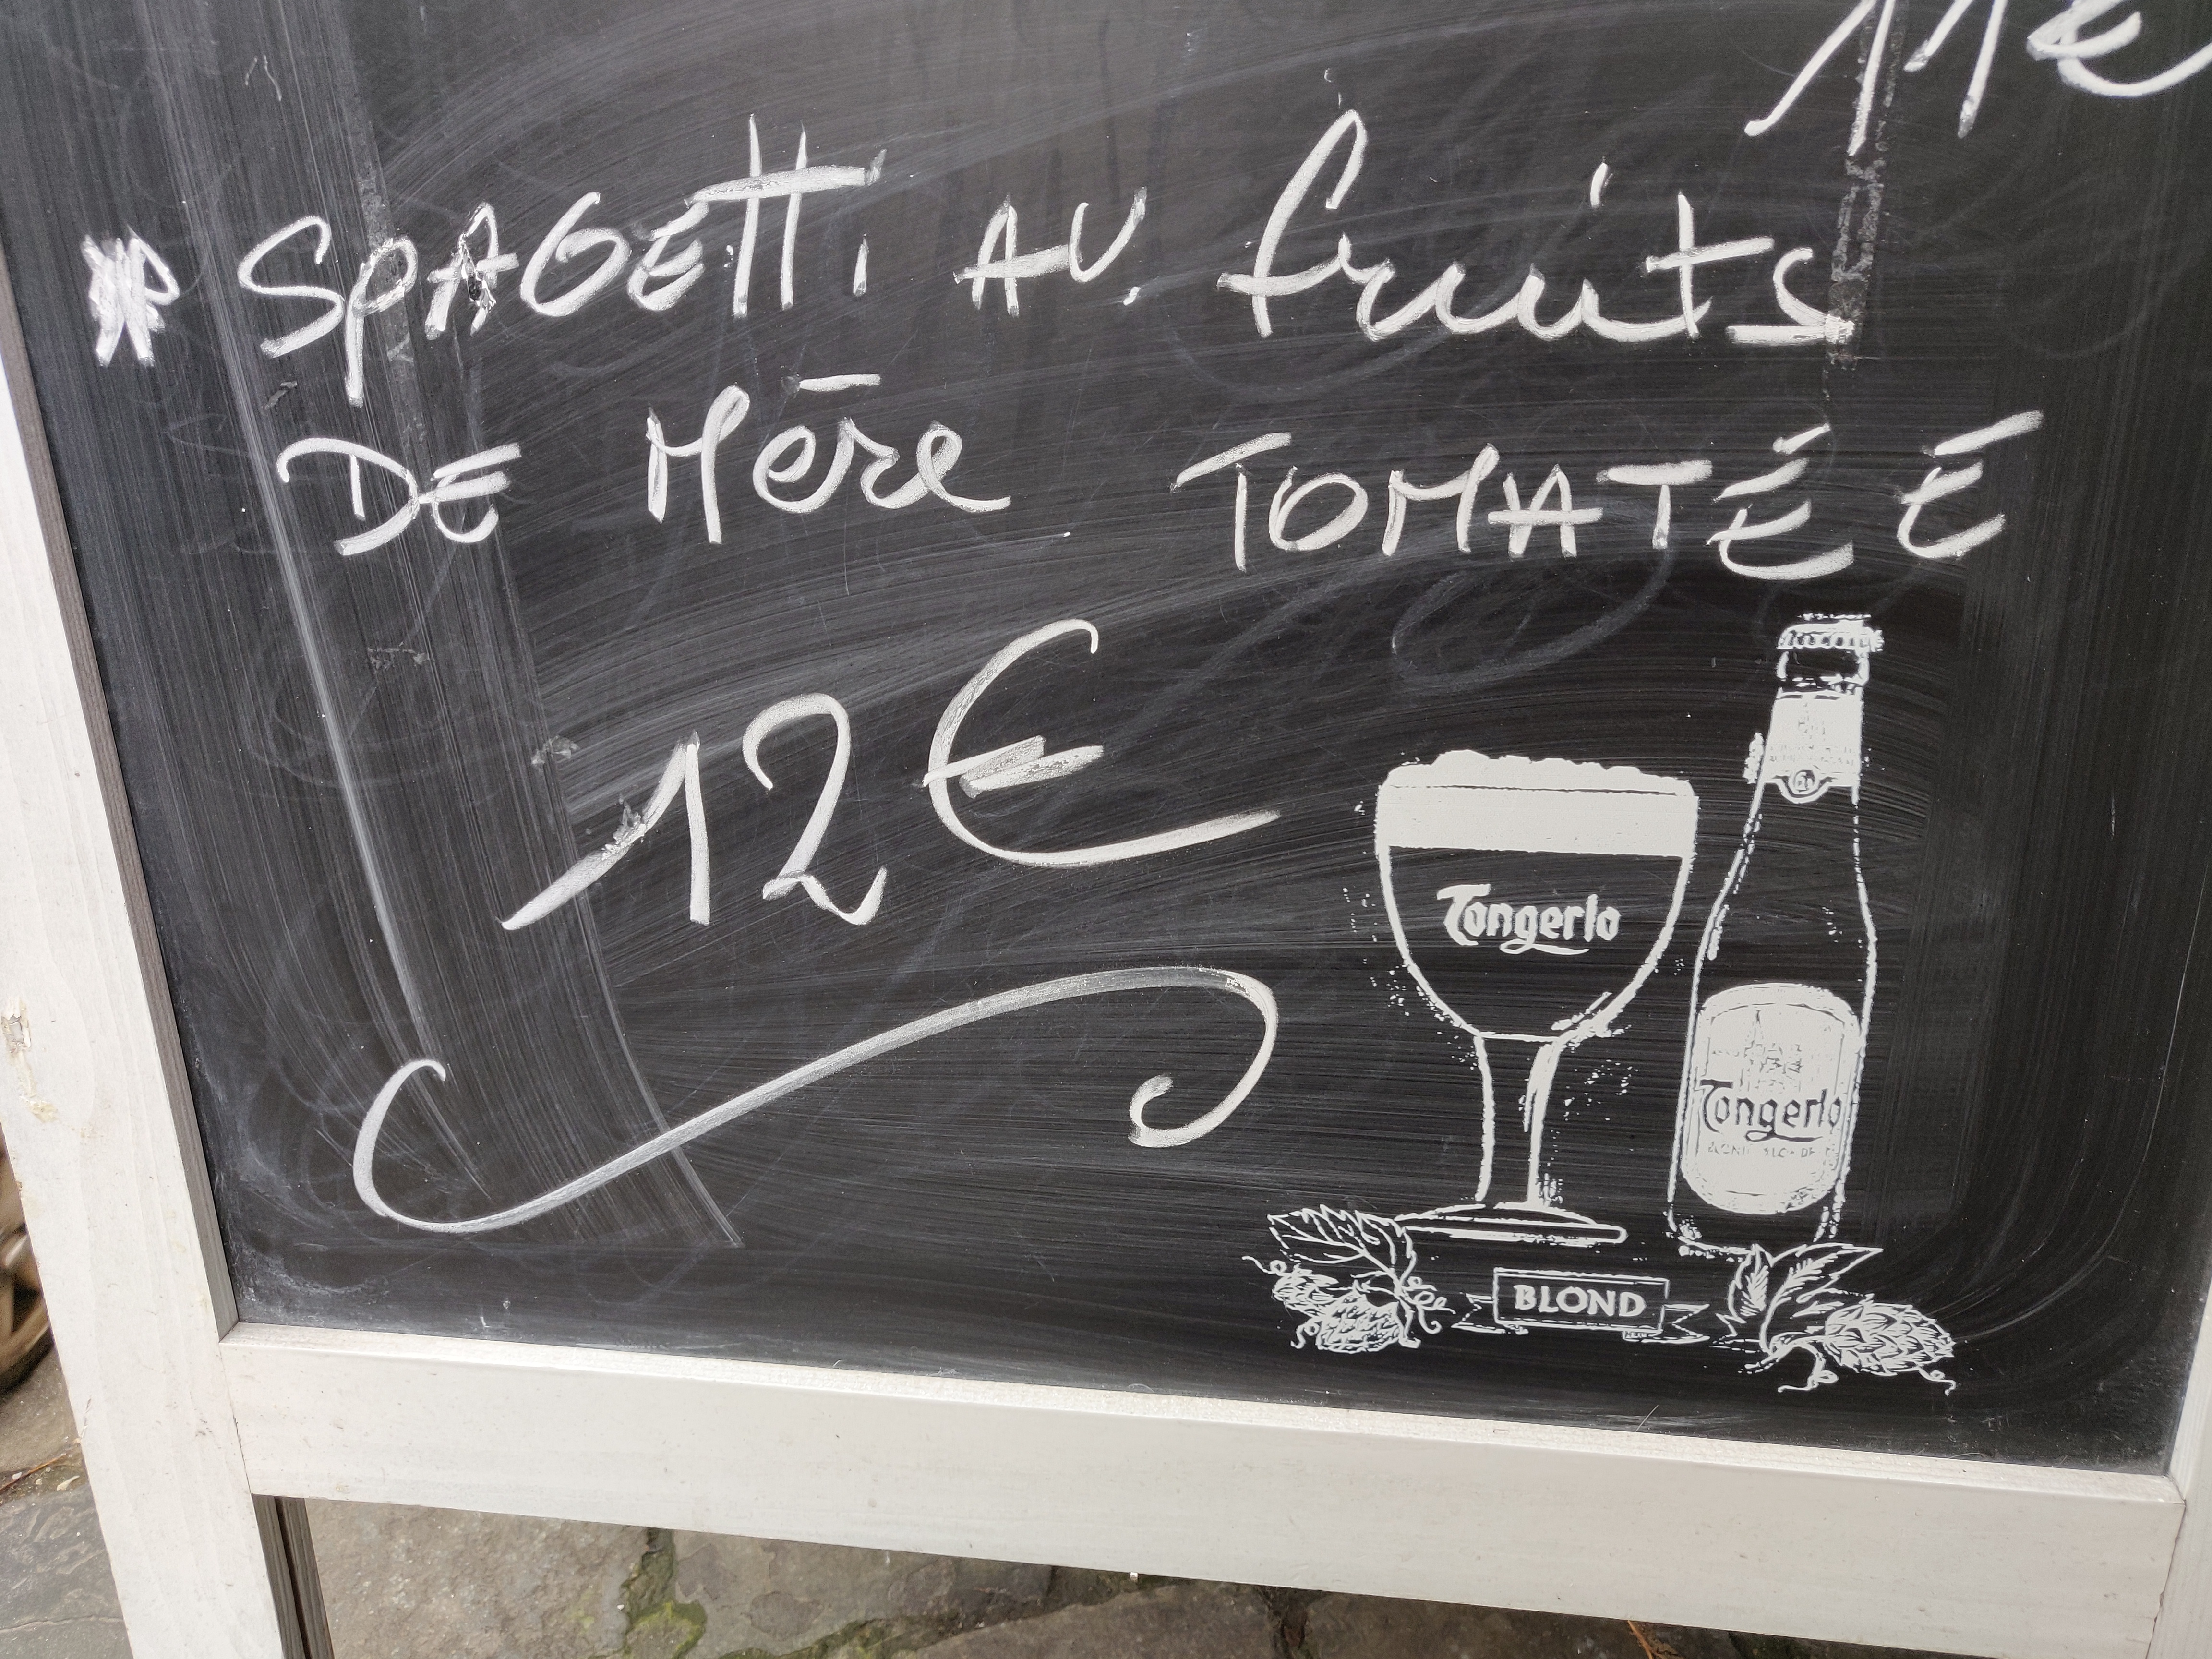 11€
* SPAGETTi AU fruits
DE Mēre TOMATÉ É
12 €
Tongerlo
Tongerlo
BLOND